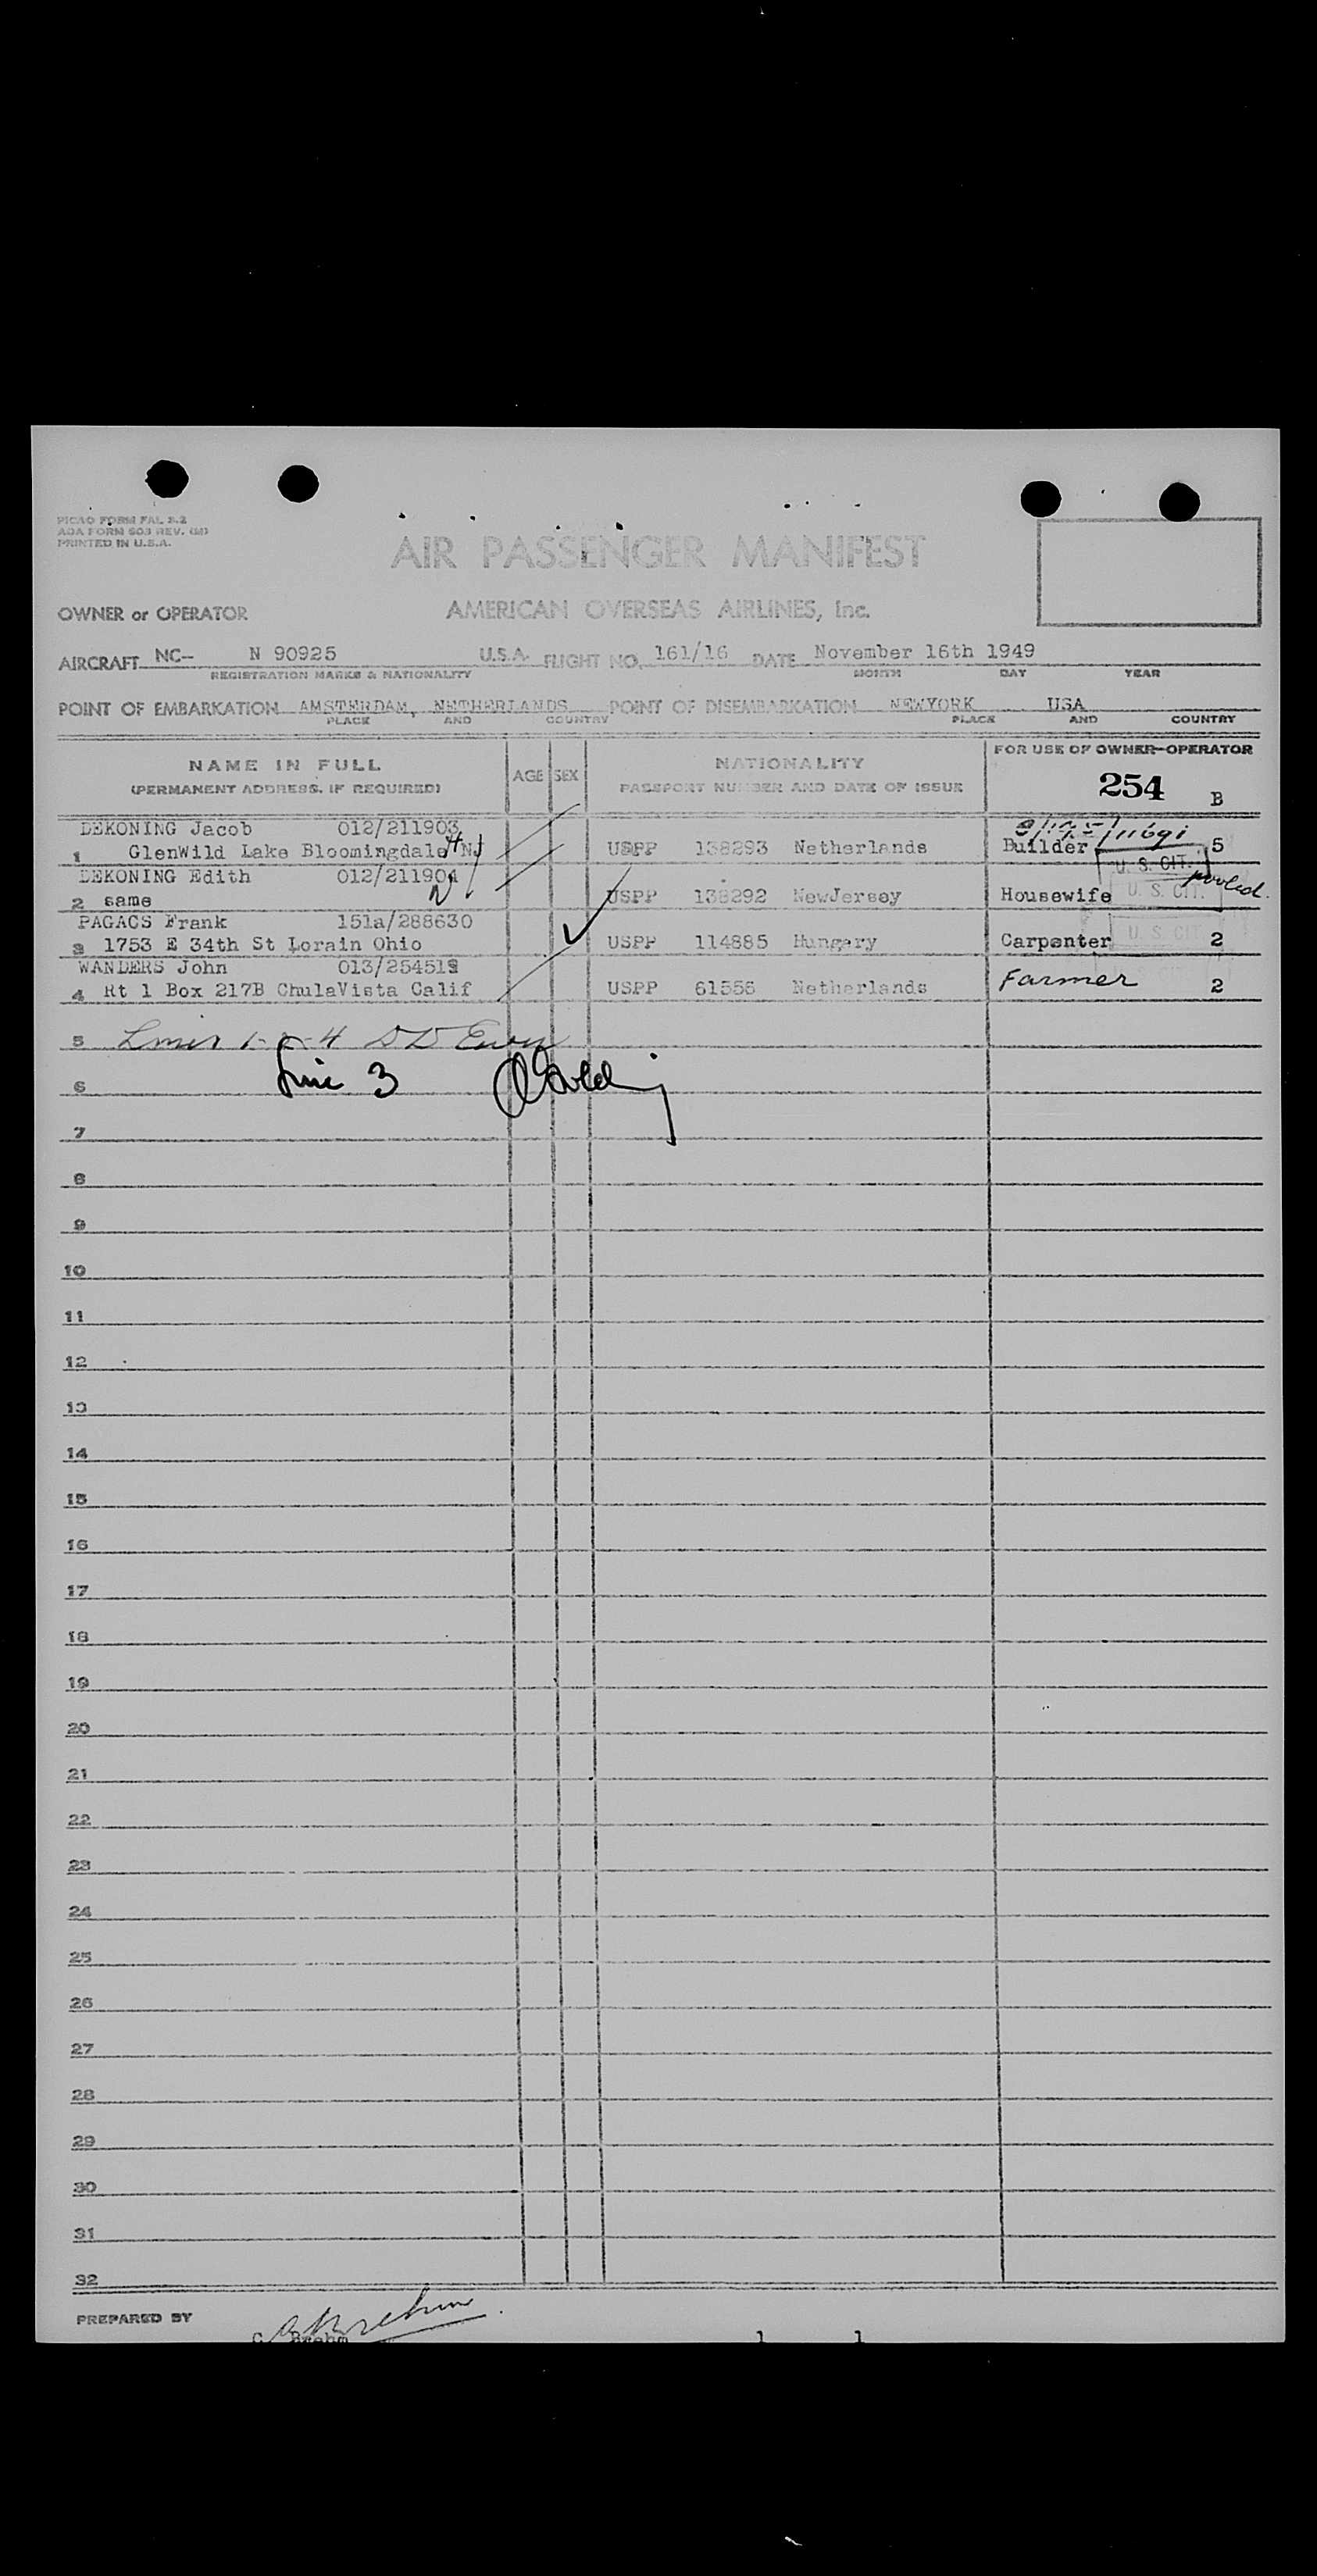 PICAO FORM FAL 2.2
AOA FORM 603 REV. (M)
PRINTED IN U.S.A.
AIR PASSENGER MANIFEST
OWNER or OPERATOR AMERICAN OVERSEAS AIRLINES, Inc.
AIRCRAFT NC-- N 90925 U.S.A. FLIGHT NO. 161/16 DATE November 16th 1949
REGISTRATION MARKS & NATIONALITY MONTH DAY YEAR
POINT OF EMBARKATION AMSTERDAM, NETHERLANDS POINT OF DISEMBARKATION NEWYORK USA
PLACE AND COUNTRY PLACE AND COUNTRY
NAME IN FULL
(PERMANENT ADDRESS, IF REQUIRED)
AGE SEX
NATIONALITY
PASSPORT NUMBER AND DATE OF ISSUE
FOR USE OF OWNER-OPERATOR
254 B
DEKONING Jacob 012/211903
1 GlenWild Lake Bloomingdale NJ USPP 138293 Netherlands Builder 5
U. S. CIT.
DEKONING Edith 012/211904
2 same USPP 138292 NewJersey Housewife U. S. CIT.
PAGACS Frank 151a/288630
3 1753 E 34th St Lorain Ohio USPP 114885 Hungary Carpenter U. S. CIT 2
WANDERS John 013/254519
4 Rt 1 Box 217B ChulaVista Calif USPP 61556 Netherlands Farmer 2
5 1-2-4
6 Line 3
7
8
9
10
11
12
13
14
15
16
17
18
19
20
21
22
23
24
25
26
27
28
29
30
31
32
PREPARED BY
C Brehm 1 1